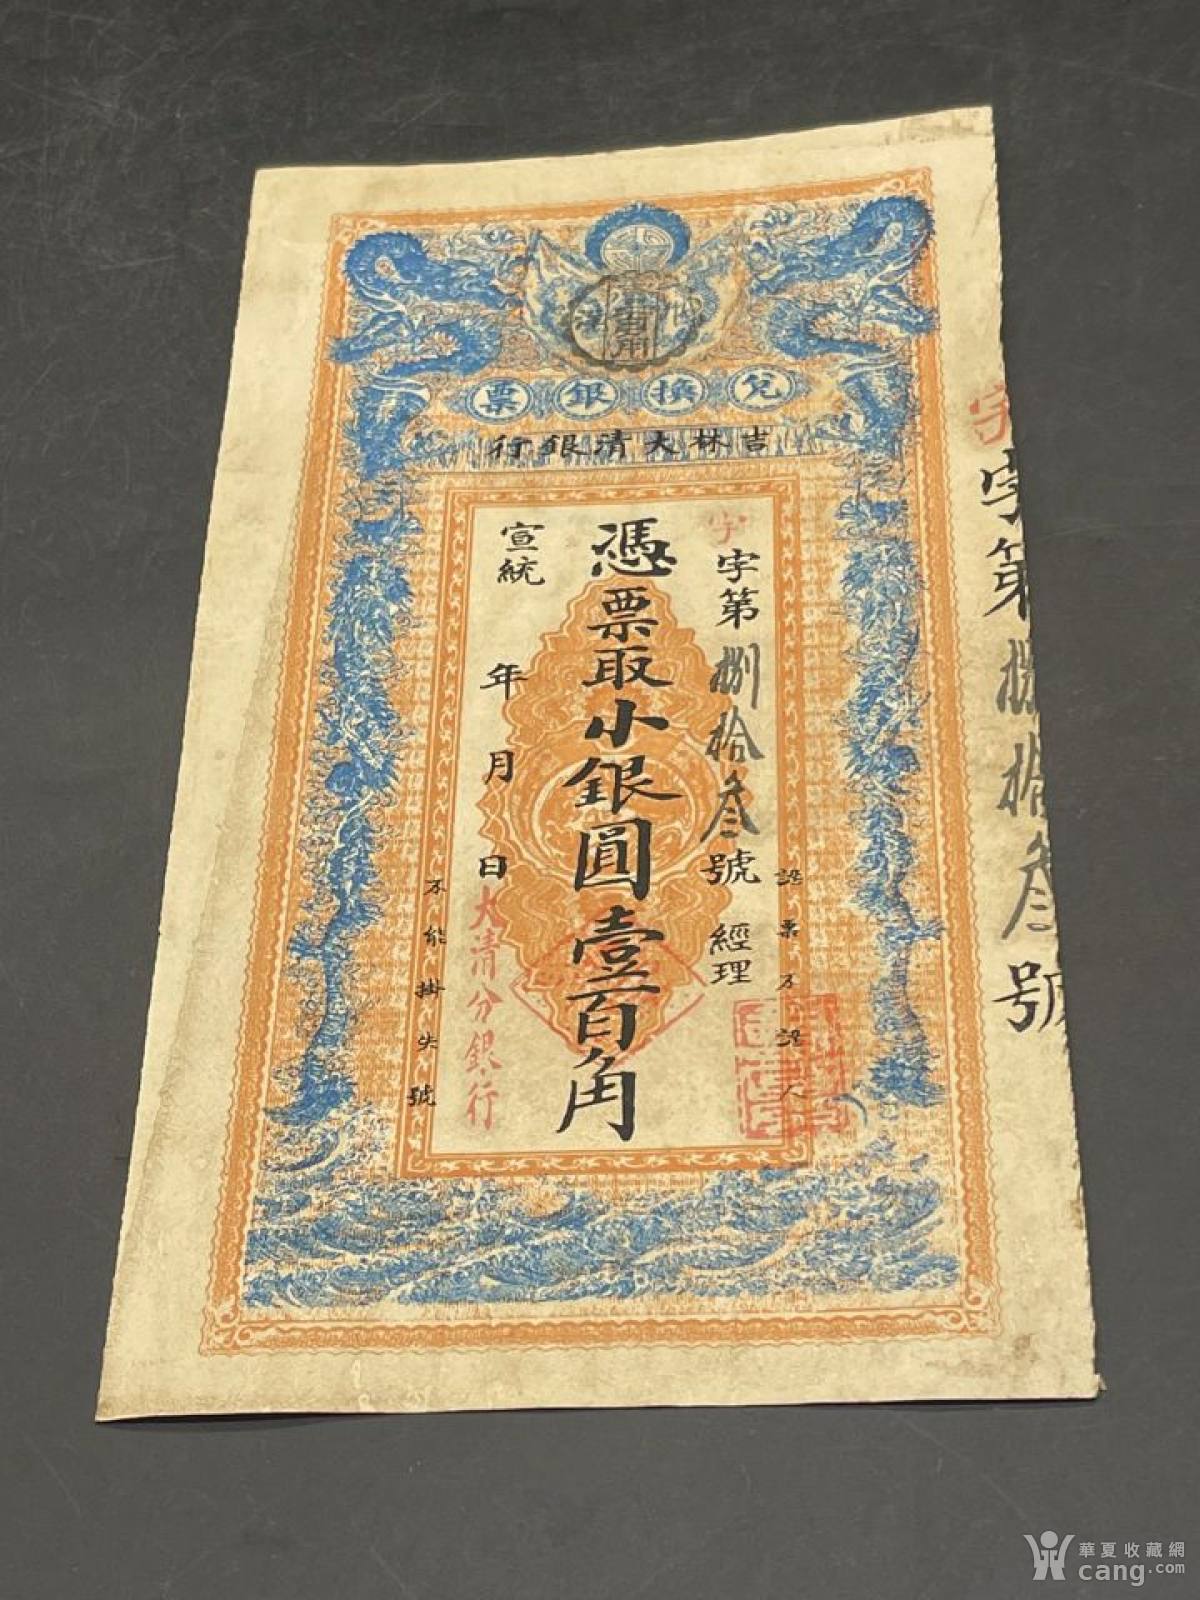 兌換銀票
吉林大清銀行
宇字第捌拾叁號 經理
憑票取小銀圓壹百角
宣統 年 月 日
大清分銀行
認票不認人
不能掛失號
宇字第捌拾叁號
華夏收藏網
cang.com